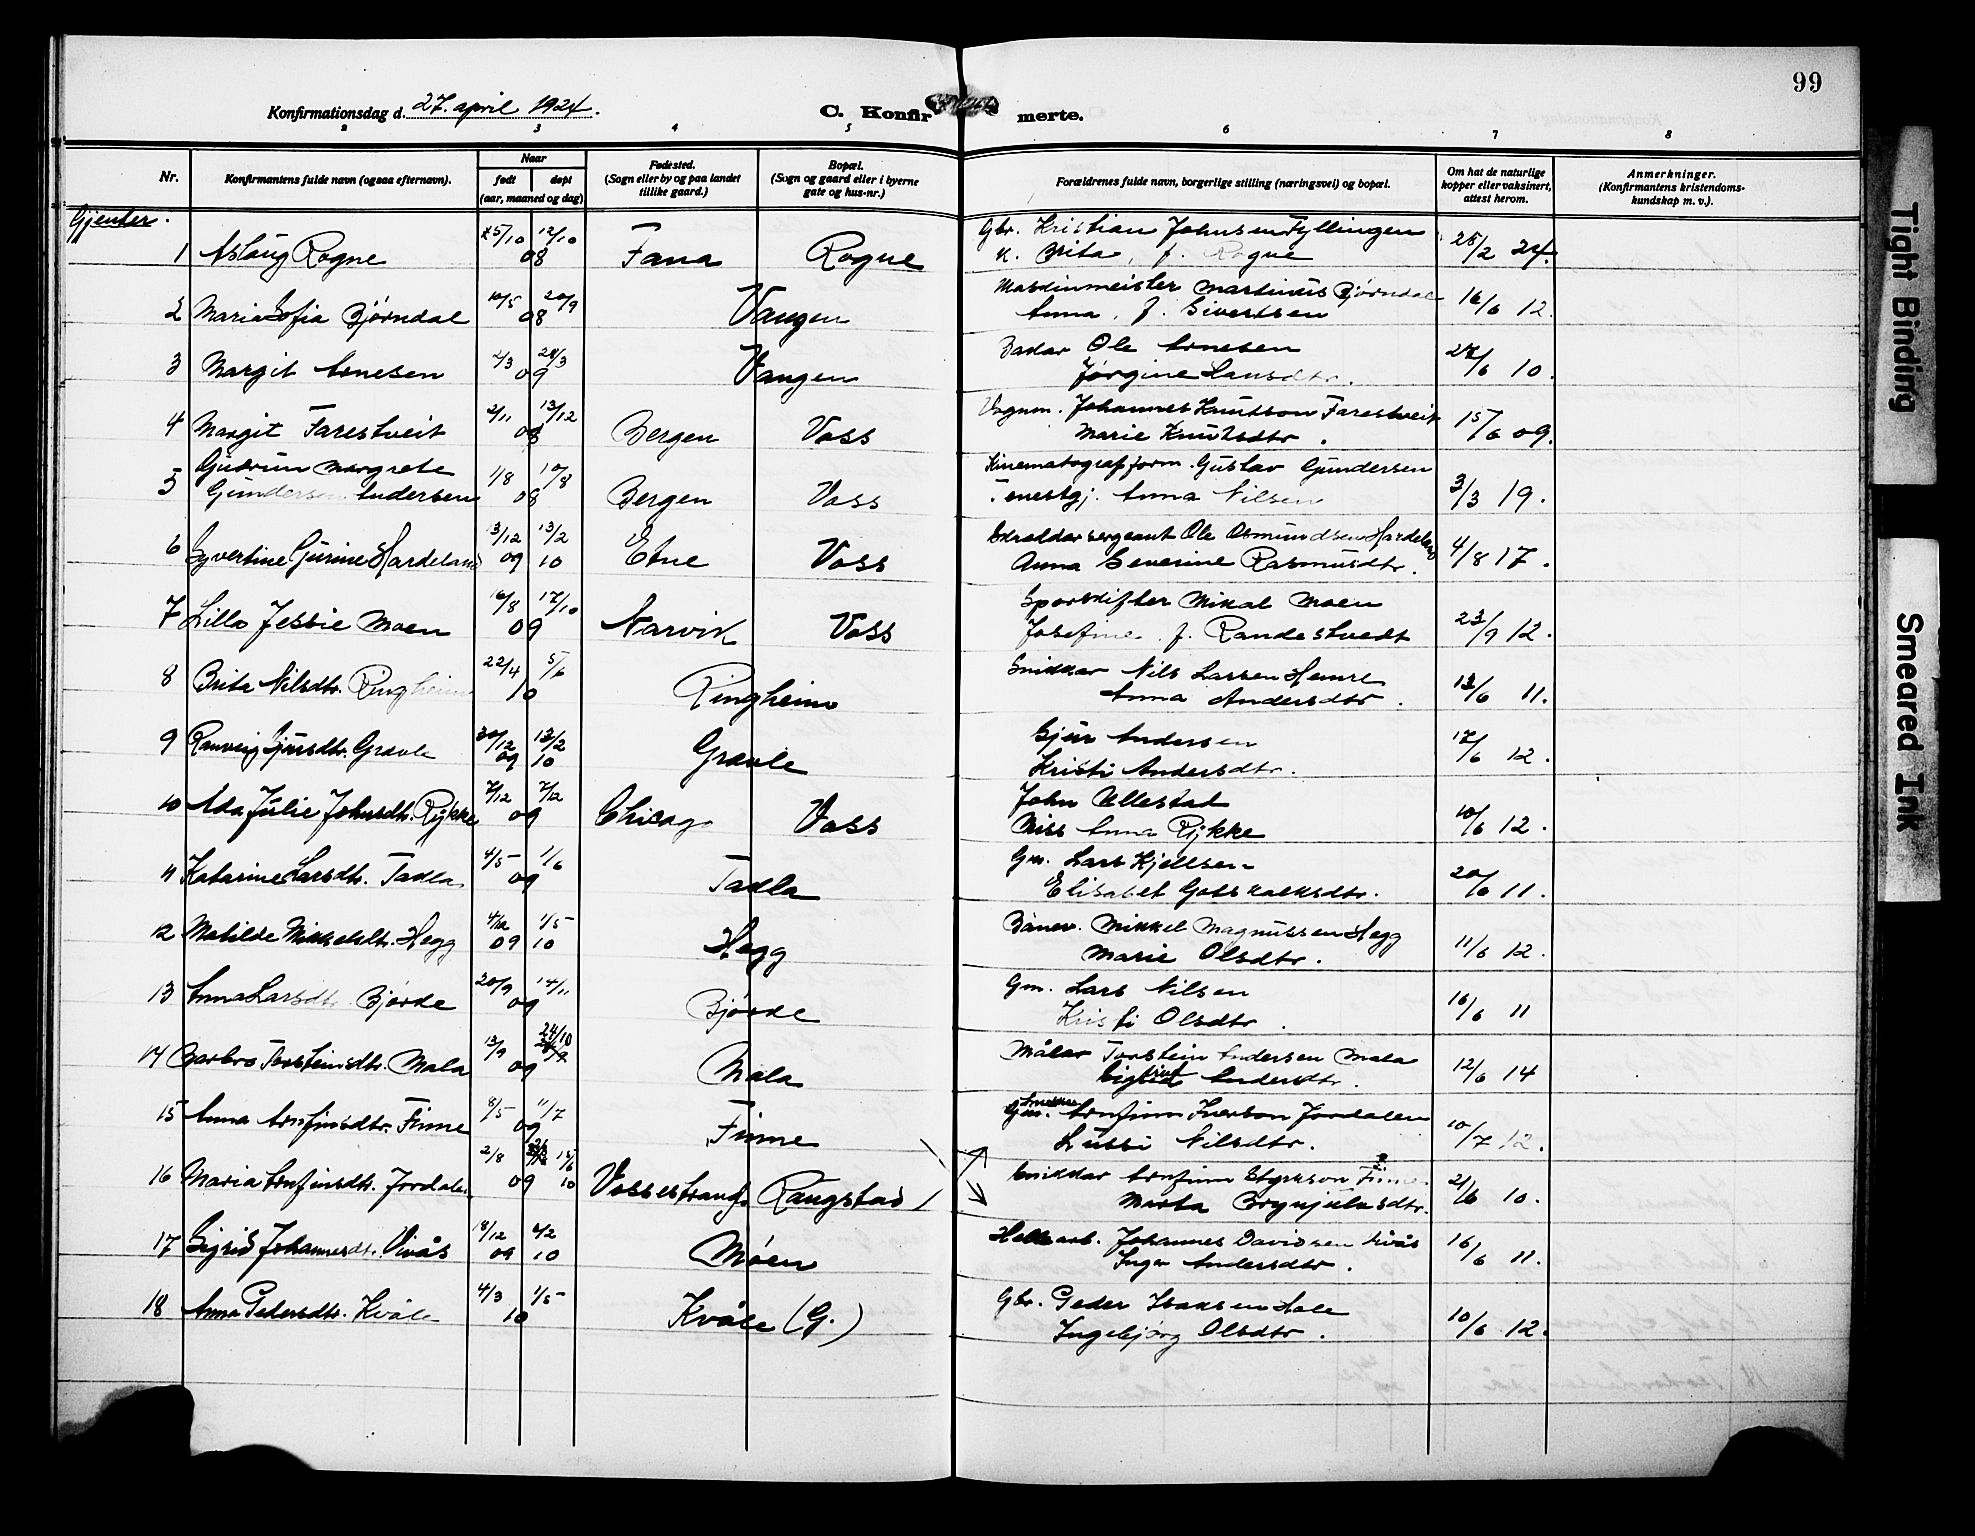 99
Konfirmationsdag d. 27. april 1924.
C. Konfir merte.
2 3 4 5 6 7 8
Nr.
Konfirmantens fulde navn (ogsaa efternavn).
Naar
født døpt
(aar, maaned og dag)
Fødested.
(Sogn eller by og paa landet
tillike gaard.)
Bopæl.
(Sogn og gaard eller i byerne
gate og hus-nr.)
Forældrenes fulde navn, borgerlige stilling (næringsvei) og bopæl.
Om hat de naturlige
kopper eller vaksinert,
attest herom.
Anmerkninger.
(Konfirmantens kristendoms-
kundskap m. v.).
Gjenter.
Gbr. Kristian Johnsen Fyllingen
1 Aslaug Rogne 25/10 12/10 08 Fana Rogne k. Brita, f. Rogne 25/2 24.
Maskinmeister Martinius Bjørndal
2 Maria Sofia Bjørndal 10/5 20/9 08 Vangen Anna, f. Sivertsen 16/6 12.
Bakar Ole Arnesen
3 Margit Arnesen 2/3 28/3 09 Vangen Jørgine Hansdtr. 27/6 10.
Vognm. Johannes Knutson Farestveit
4 Margit Farestveit 2/11 13/12 08 Bergen Voss Marie Knutsdtr. 15/6 09.
Gudrun Margrete
Kinematografform. Gustav Gundersen
5 Gundersen Andersen 1/8 10/8 08 Bergen Voss Tenestgj. Anna Nilsen 3/3 19.
Ole Osmundsen Hardeland
6 Syvertine Gurine Hardeland 13/12 09 13/2 10 Etne Voss Anna Severine Rasmusdtr. 4/8 17.
Sporskifter Mikal Moen
7 Lilly Jessie Moen 16/8 17/10 09 Narvik Voss Josefine f. Randestvedt 23/9 12.
Snikkar Nils Larsen Hemre
8 Brita Nilsdtr. Ringheim 22/4 5/6 10 Ringheim Anna Andersdtr. 13/6 11.
Gjur Andersen
9 Ranveig Gjursdtr. Gravle 30/12 09 13/2 10 Gravle Kristi Andersdtr. 17/6 12.
John Ullestad
10 Ada Julie Johnsdtr. Rykke 7/12 7/12 09 Chicago Voss Miss Anna Rykke 10/6 12.
Gm. Lars Kjellsen
11 Katarine Larsdtr. Tadla 4/5 1/6 09 Tadla Elisabet Gotskalksdtr. 20/6 11.
Banev. Mikkel Magnussen Hegg
12 Matilde Mikkelsdtr. Hegg 4/12 09 1/5 10 Hegg Marie Olsdtr. 11/6 12.
Gm. Lars Nilsen
13 Anna Larsdtr. Bjørke 20/9 14/11 09 Bjørke Kristi Olsdtr. 16/6 11
Målar Torstein Andersen Mala
14 Barbro Torsteinsdtr. Mala 13/9 24/10 09 Mala Andersdtr. 12/6 14
Gm. Arnfinn Iverson Jordalen
15 Anna Arnfinsdtr. Finne 8/5 11/7 09 Finne Lussi Nilsdtr. 10/7 12.
Snikkar Arnfinn Styrkson Finne
16 Maria Arnfinsdtr. Jordalen 2/8 09 15/6 10 Vossestrand Rangstad Marta Brynjulvsdtr. 21/6 10.
Johannes Davidsen Vivås
17 Sigrid Johannesdtr. Vivås 18/12 09 6/2 10 Møen Inger Andersdtr. 16/6 11.
Gbr. Peder Isaksen Hole
18 Anna Pedersdtr. Kvåle 4/3 1/5 10 Kvåle (G.) Ingebjørg Olsdtr. 10/6 12.
Tight Binding
Smeared Ink